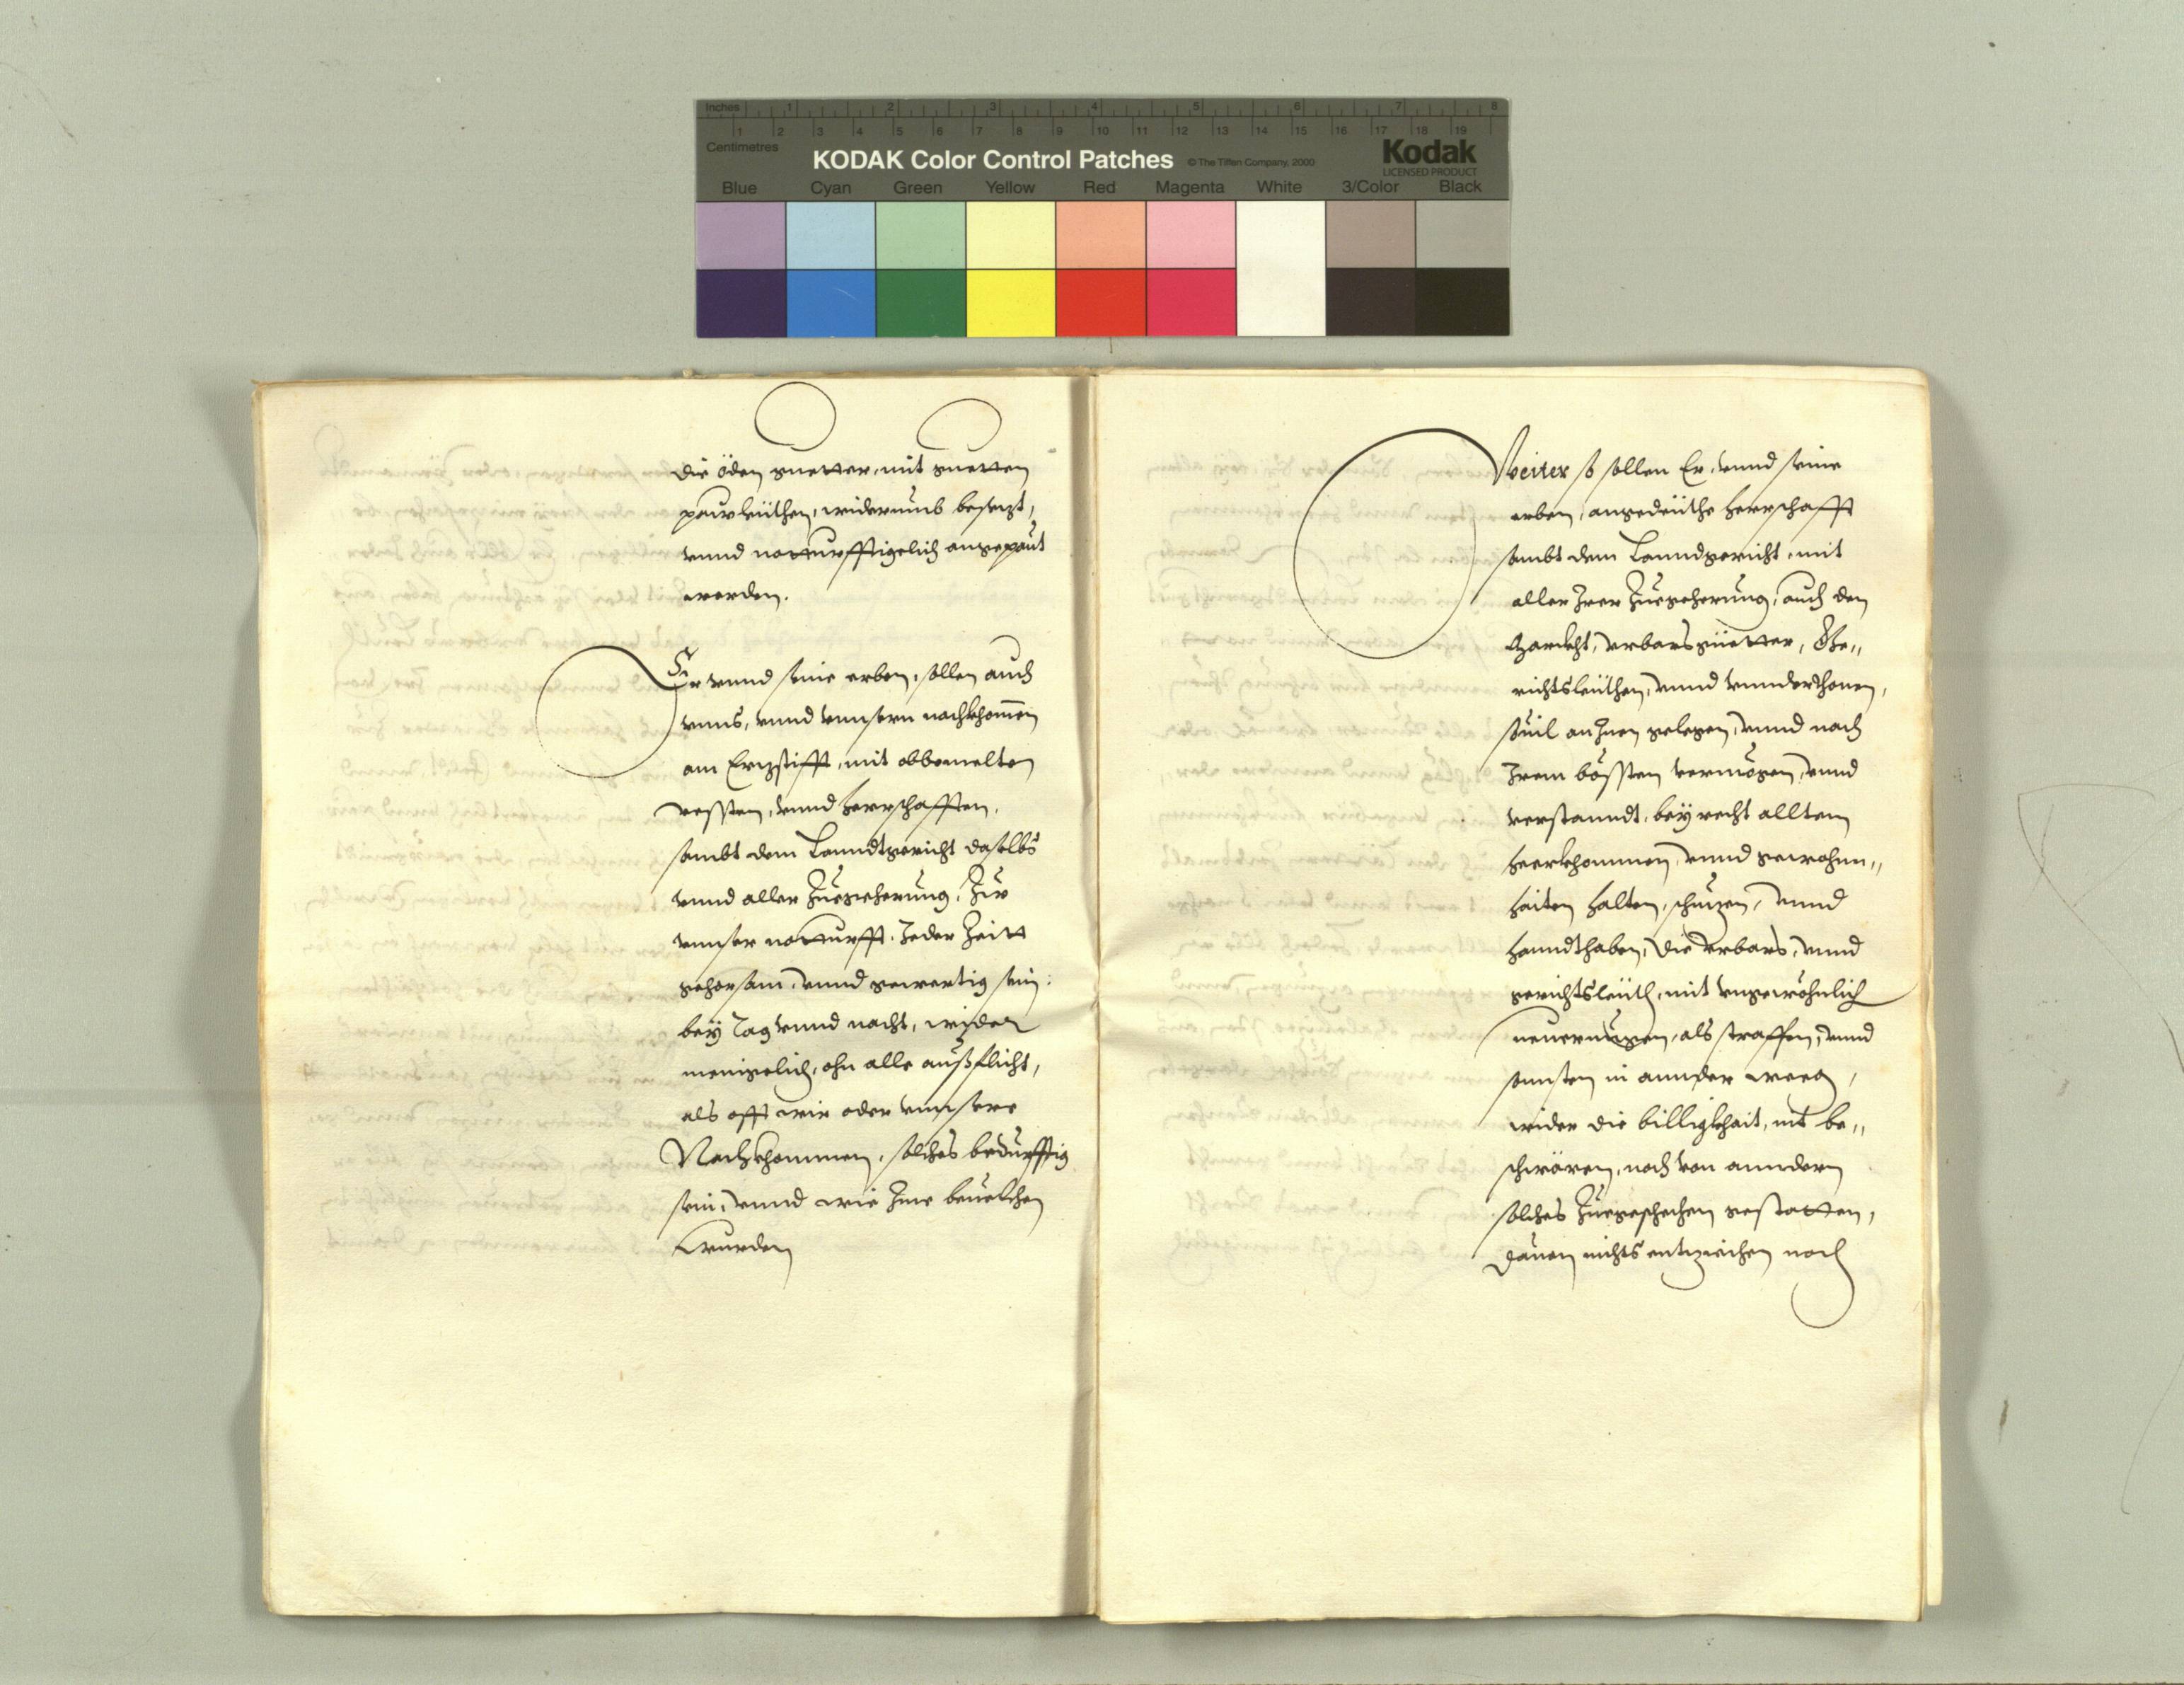 Inches 1 2 3 4 5 6 7 8
1 2 3 4 5 6 7 8 9 10 11 12 13 14 15 16 17 18 19
Centimetres
KODAK Color Control Patches © The Tiffen Company, 2000 Kodak
LICENSED PRODUCT
Blue Cyan Green Yellow Red Magenta White 3/Color Black
die öden guetter, mit guetten
paurleüthen, widerumb besezt,
vnnd notturfftigelich angepaut
werden.
Er vnnd seine erben, sollen auch
vnns, vnnd vnnsern nachkhom̄en
am Erzstifft, mit obbemelten
vessten, vnnd herrschafften,
sambt dem Lanndtgericht daselbs
vnnd aller Zuegeherung, Zur
vnnser notturfft, Jeder Zeitt
gehorsam, vnnd gewerttig sein,
bey tag vnnd nacht, wider
menigelich, ohn alle außflicht,
als offt wir oder vnnsere
Nachkhommen, solches bedurfftig
sein, vnnd wir Jme beuelchen
wurden
Weiter so sollen Er, vnnd seine
erben, angedeüthe herrschafft
sambt dem Lanndgericht, mit
aller Jrer Zuegeherung, auch den
Marckht, vrbarsgüetter, Ge„
richtsleüthen, vnnd vnnderthonen,
souil an Jnen gelegen, vnnd nach
Jrem bössten vermögen, vnnd
verstanndt, bey recht alltem
heerkhommen, vnnd gewohn„
haiten halten, schuzen, vnnd
hanndthaben, die vrbars, vnnd
gerichtsleüth, mit vngewöhnlich
neuerungen, als straffen, vnnd
sonnsten in annder weeg,
wider die billigkhait, nit be„
schwären, noch von anndern
solches Zuegeschechen gestatten,
dauon nichts entziechen noch